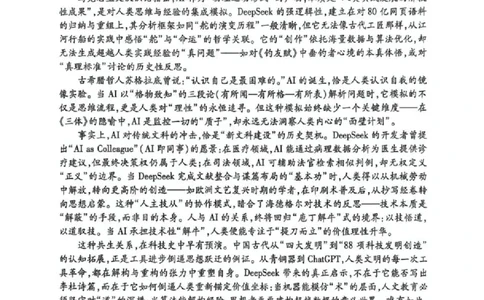 性成果”,是对人类思维与经验的集成模拟。DeepSeek 的强逻辑性,建立在对 80 亿网页语料
的归纳与重组上,其分析框架如同“舵的演变历程”一般清晰,但它无法像古代工匠那样,从江
河行船的实践中感悟“舵”与“命运”的哲学联系。它的“创作”依托海量数据与算法优化,却
无法生成超越人类实践经验的“真问题”——如对《钓友赋》中垂钓者心境的本真体悟,或对
“真理标准”讨论的历史性反思。
古希腊哲人苏格拉底曾说:“认识自己是最困难的。”AI 的诞生,恰是人类认识自我的镜
像实验。当 AI 以“格物致知”的三段论(有所闻—有所格—有所表)解析问题时,它模拟的不
仅是思维流程,更是人类对“理性”的永恒追寻。但这种模拟始终缺少一个关键维度——在
《三体》的隐喻中,AI 是监控一切的“质子”,却永远无法洞察人类内心的“面壁计划”。
事实上,AI 对传统文科的冲击,恰是“新文科建设”的历史契机。DeepSeek 的开发者曾提
出“AI as Colleague”(AI 即同事)的愿景:在医疗领域,AI 能通过病理数据分析为医生提供诊
疗建议,但最终决策权仍属于人类;在司法领域,AI 可辅助法官检索相似判例,却无权定义
“正义”的边界。当 DeepSeek 完成文献整合与谋篇布局的“基本功”时,人类得以从机械劳动
中解放,转向更高阶的创造——如欧洲文艺复兴时期的学者,在印刷术普及后,从抄写经卷转
向思想启蒙。这种“人主技从”的协作模式,暗合了海德格尔对技术的反思——技术本质是
“解蔽”的手段,而非目的本身。人与 AI 的关系,终将回归“庖丁解牛”式的境界:以技悟道,
以道驭技。当 AI 承担技术性“解牛”,人类便能专注于“提刀而立”的价值理性升华。
这种共生关系,在科技史中早有预演。中国古代从“四大发明”到“88 项科技发明创造”
的认知拓展,正是工具进步倒逼思想跃迁的例证。从青铜器到 ChatGPT,人类文明的每一次工
具革命,都在解构与重构的张力中重塑自身。DeepSeek 带来的真正启示,不在于它能否写出
李杜诗篇,而在于它如何倒逼人类重新锚定价值坐标:当机器能模仿“术”的层面,人文教育必